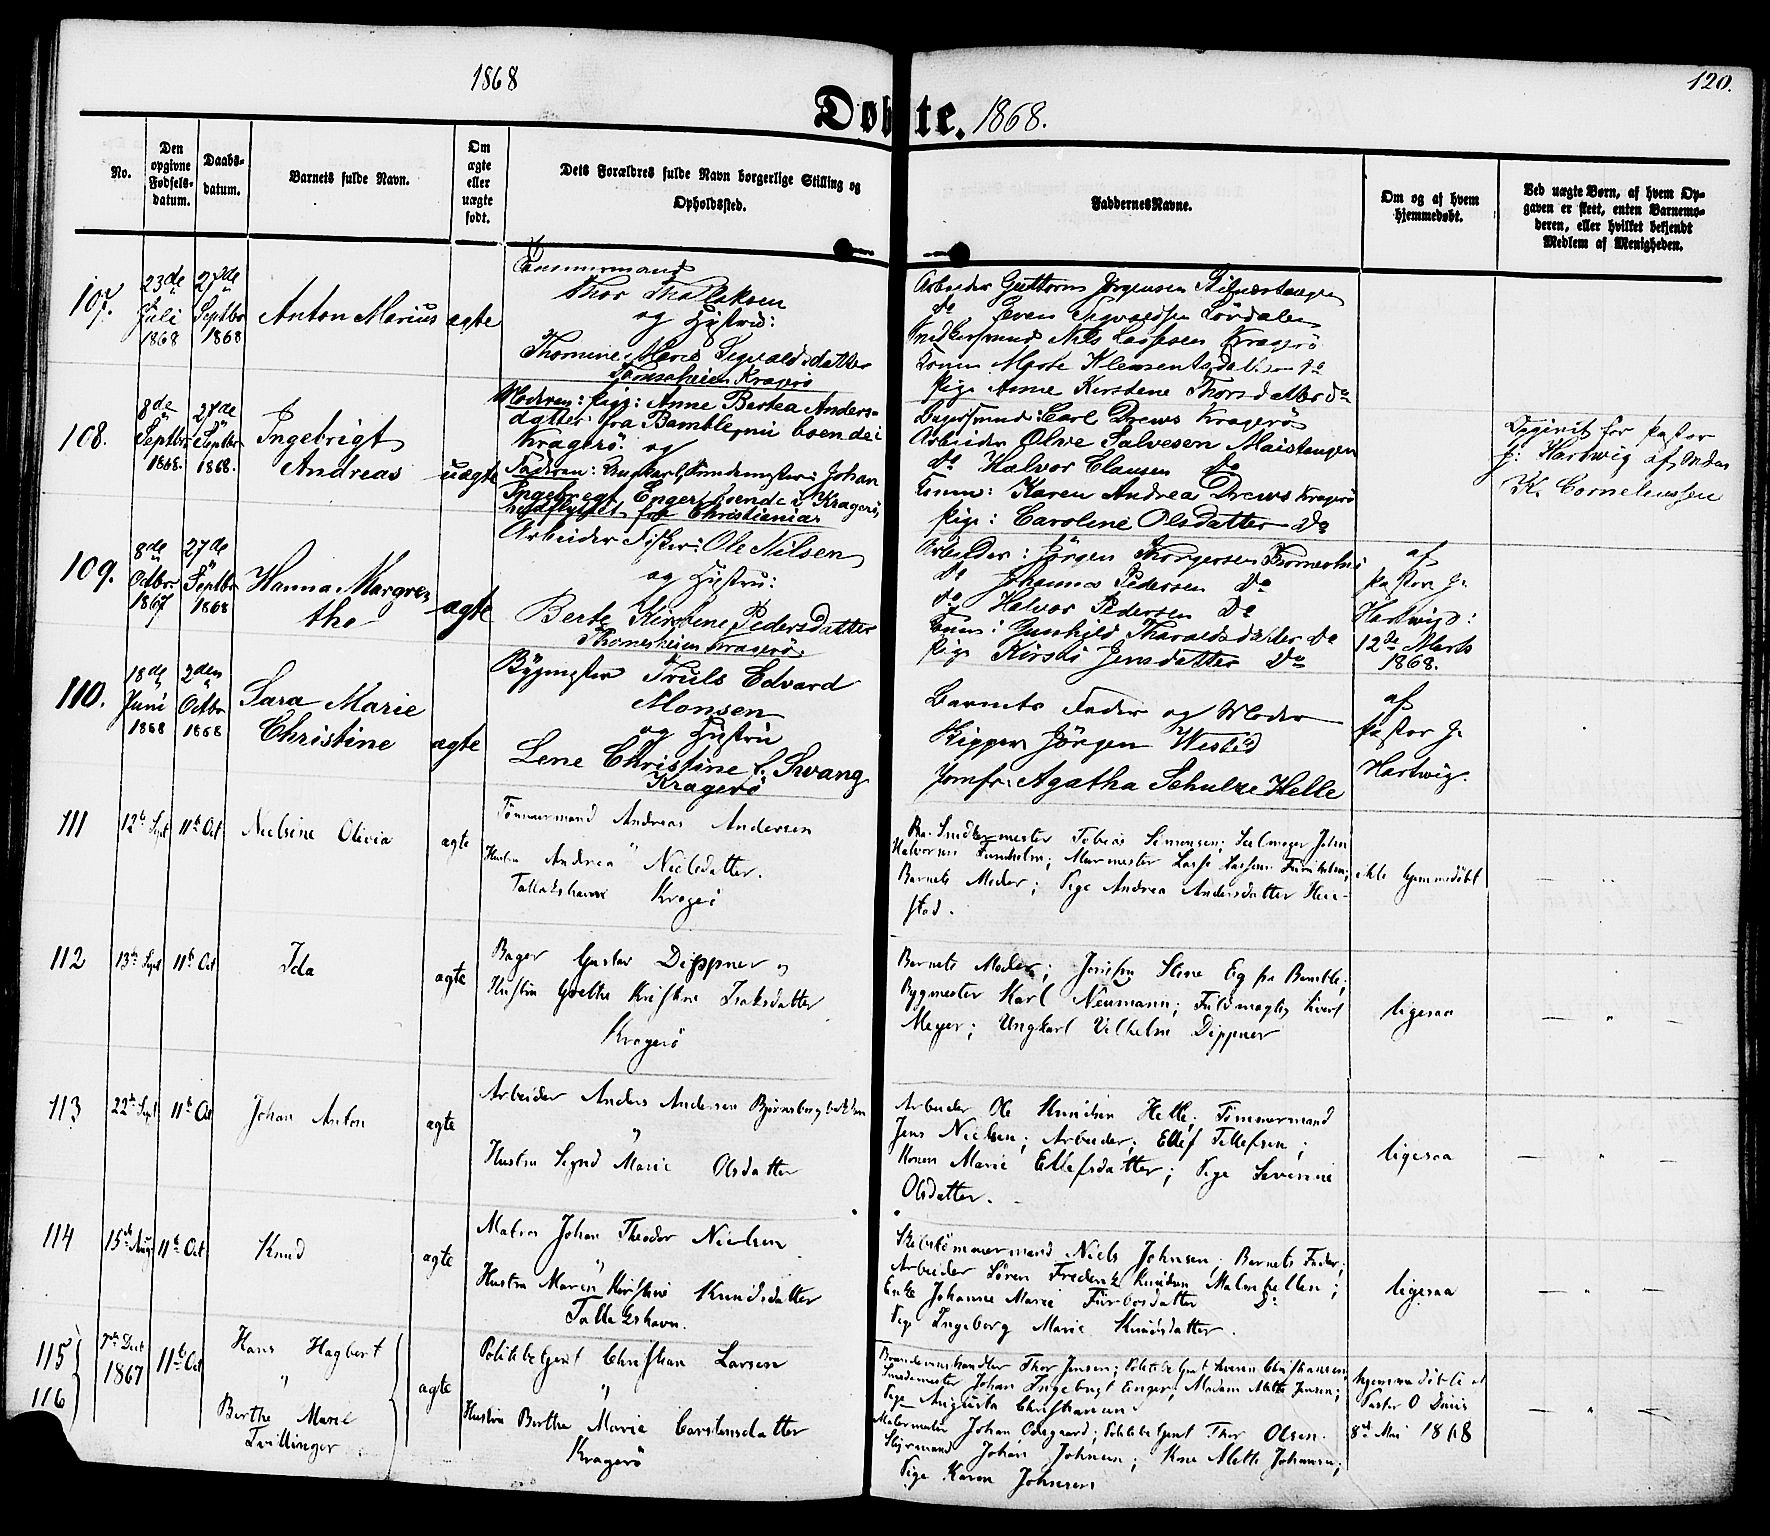 1868
120.
Døbte. 1868.
No.
Den opgivne Fødsels-datum.
Daabs-datum.
Barnets fulde Navn.
Om ægte eller uægte født.
Dets Forældres fulde Navn borgerlige Stilling og Opholdssted.
Faddernes Navne.
Om og af hvem hjemmedøbt.
Ved uægte Børn, af hvem Opgaven er skeet, enten Barnemoderen, eller hvilket bekjendt Medlem af Menigheden.
107.
23de Juli 1868
27de Septbr 1868
Anton Marius
ægte
Tømmermand
Thor
og Hustru:
Thomine Marie Sigvaldsdatter
Kragerø
Arbeider Guttorm Jørgensen
do Even Sigvaldsen Lövdalen
Nils Kragerø
Konen Marte Klemensdatter do
Pige Anne Kirstene Thorsdatter do
108.
8de Septbr 1868.
27de Septbr 1868.
Ingebrigt
Andreas
uægte
Moderen: Pige: Anne Bertea Anders-
datter fra Bamble, nu boende i
Kragerø og
Faderen: Johan
Ingebregt Enger, boende i Kragerø,
fra Christiania
Carl Drews Kragerø
Arbeider Olve Salvesen Maistangen
do Halvor Clausen do
Konen: Karen Andrea Drews Kragerø
Pige: Caroline Olsdatter do
Opgivet for Pastor
J: Hartwig af
K. Corneliussen
109.
8de Octbr 1867
27de Septbr 1868
Hanna Margre-
the
ægte
Arbeider Fisker: Ole Nilsen
og Hustru:
Berte Kirstene Pedersdatter
Thomesheien Kragerø
Arbeider: Jörgen Thorgersen
do Johannes Pedersen do
do Halvor Pedersen do
Konen: Gunhild Tharaldsdatter do
Pige Kirsti Jensdatter do
af
Pastor J.
Hartwig:
12te Marts
1868.
110.
18de Juni 1868
2den Octbr 1868
Sara Marie
Christine
ægte
Bÿgmester Truls Edvard
Monsen
og Hustru
Lene Christine f. Swang
Kragerø
Barnets Fader og Moder
Skipper Jörgen
Jomfr: Agatha Schulze Helle
af
Pastor J.
Hartwig.
111
12te Sept
11te Oct
Nielsine Olivia
ægte
Tömmermand Andreas Andersen
Hustru Andrea Nielsdatter.
Kragerö
Smedemester Tobias Simonsen; John
Halvorsen Furuholm; Murmester
Barnets Moder; Pige Andrea Andersdatter Hei-
stad.
ikke hjemmedöbt
— " —
112
13te Sept
11te Oct
Ida
ægte
Bager Gustav Dippner og
Hustru Grethe Kirstine Isaksdatter
Kragerö
Barnets Moder; Jomfru Stine Eg fra Bamble;
Bygmester Karl Neumann; Fuldmægtig
Meyer; Ungkarl Vilhelm Dippner
ligesaa
— " —
113
22de Sept
11te Oct
Johan Anton
ægte
Arbeider Anders Andersen Bjørnsbergbakken
"
Hustru Signe Marie Olsdatter
Arbeider Ole Knudsen Helle; Tömmermand
Jens Nielsen; Arbeider; Ellef Tellefsen;
Konen Marie Ellefsdatter; Pige Severine
Olsdatter.
ligesaa
— " —
114
15de Aug
11te Oct
Knud
ægte
Matros Johan Theodor Nielsen
"
Hustru Maren Kirstine Knudsdatter
Tallakshavn.
Skibstömmermand Niels Johnsen; Barnets Fader;
Arbeider Sören Frederik Knudsen Malmhellen;
Enke Johanne Marie do
Pige Ingeborg Marie Knudsdatter.
ligesaa
— " —
115
116
7de Dec 1867
11te Oct
Hans Hagbert
"
Berthe Marie
Tvillinger
ægte
Politibetjent Christian Larsen
"
Hustru Berthe Marie Carstensdatter
Kragerö
Thor Jensen; Politibetjent Christiansen;
Smedemester Johan Ingebregt Enger; Madam Mette Jensen;
Pige Augusta Christiansen
Johan Odegaard; Politibetjent Thor Olsen.
Styrmand Johan Johnsen; Kone Mette Johansen;
Pige Karen Johnsen
hjemmedöbte af
Pastor O
8de Mai 1868
— " —